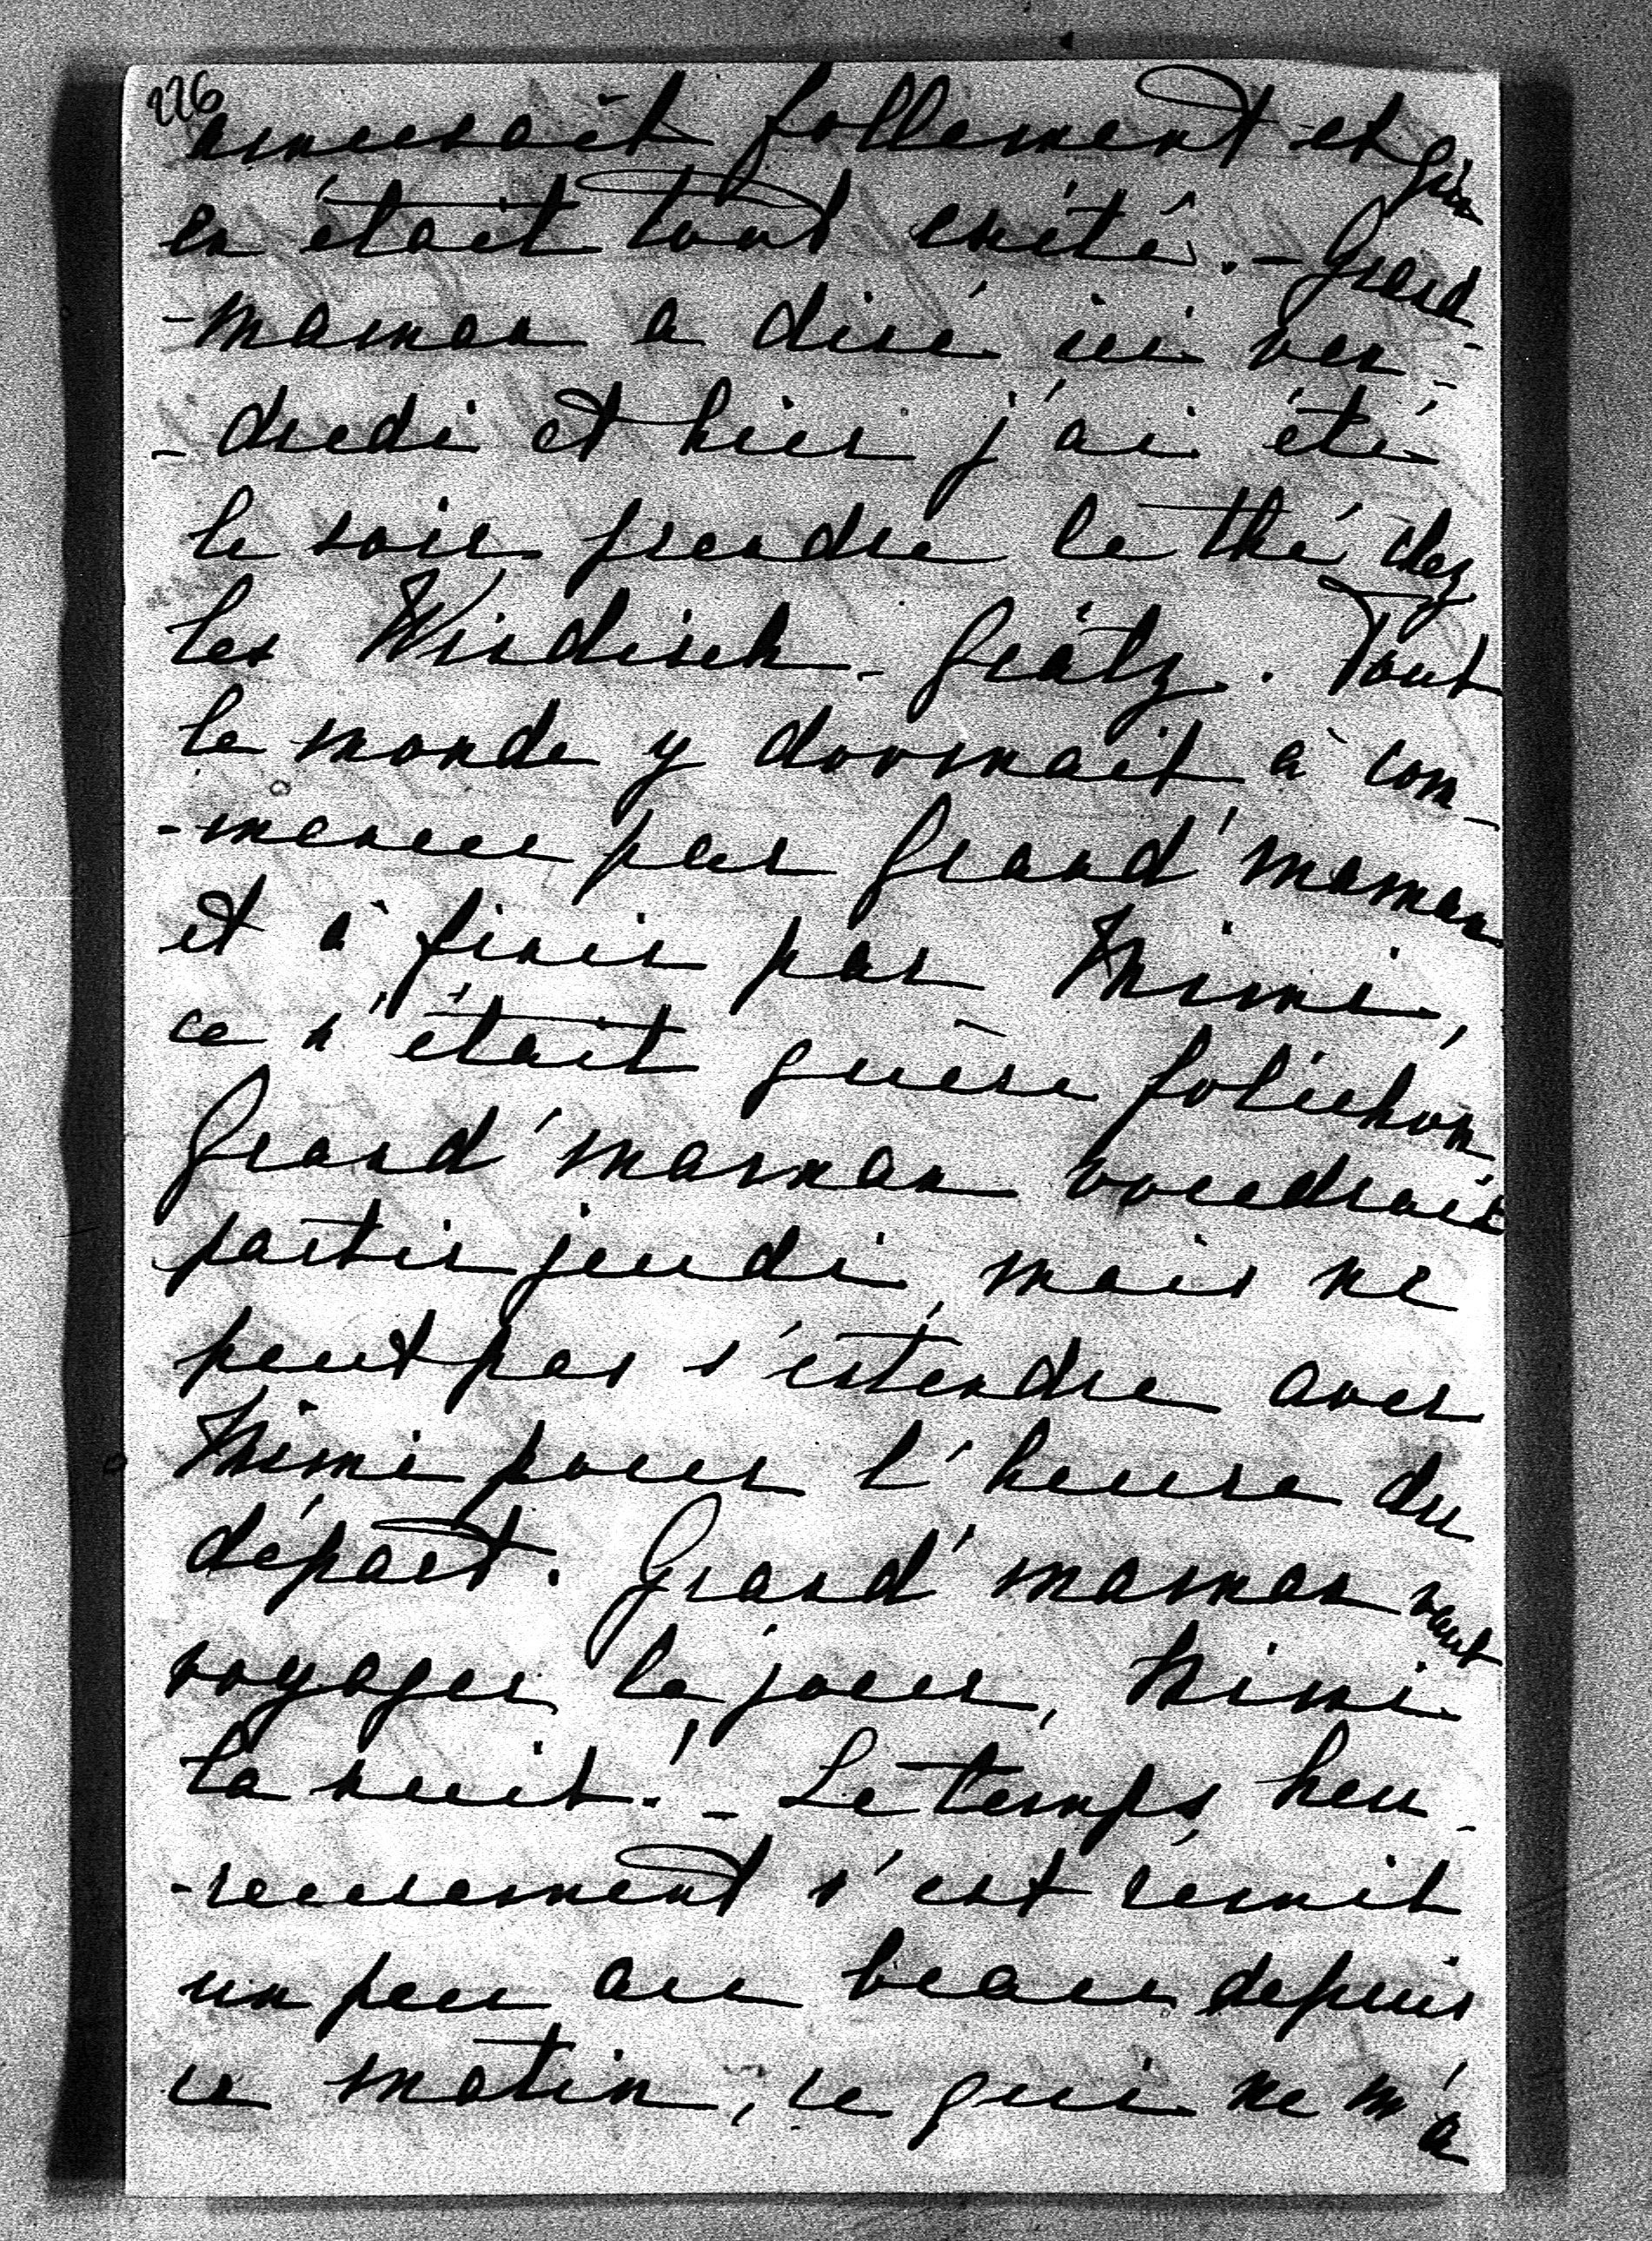 226
amusait follement et
en était tout excité. - Grand
- maman a dîné ici ven -
- dredi et hier j'ai été
le soir prendre le thé chez
les Windisch-Grätz. Tout
le monde y dormait à com -
- mencer par Grand'maman
et à finir par Mimi,
ce n'était guère folichon
Grand'maman voudrait
partir jeudi, mais ne
peut pas s'entendre avec
Mimi pour l'heure du
départ. Grand'maman veut
voyager le jour, Mimi
la nuit! - Le temps heu -
- reusement s'est remit
un peu au beau depuis
ce matin, ce qui ne m'a